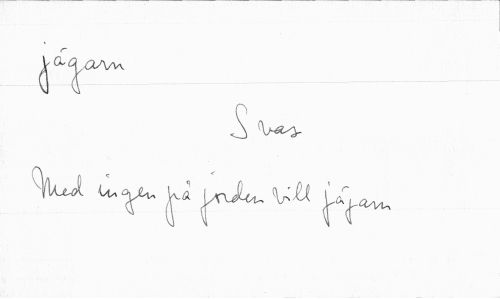 jägarn
S vas
Med ingen på jorden vill jägarn